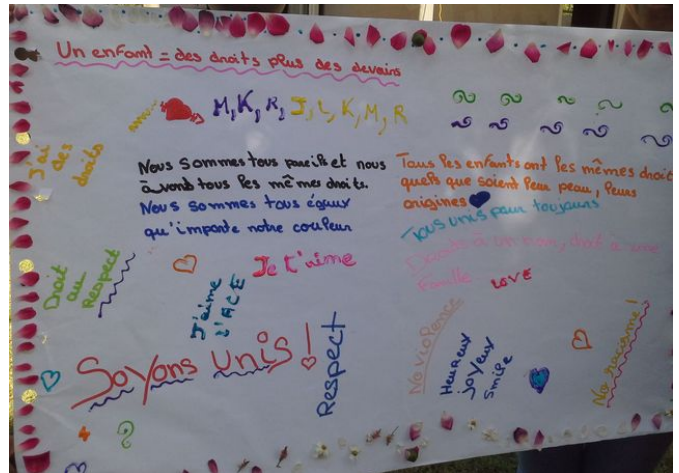 Un enfant = des droits plus des devoirs
M, K, R, J, L, K, M, R
J'ai
des
droits
Nous sommes tous pareils et nous
avons tous les mêmes droits.
Nous sommes tous égaux
qu'importe notre couleur
Tous les enfants ont les mêmes droit
quels que soient leur peau, leurs
origines
Tous unis pour toujours
Droits à un nom, droit à une
famille
LOVE
Droit
au
Respect
Je t'aime
J'aime
l'ACE
Soyons unis !
Respect
No violence
Heureux
joyeux
smile
No racisme !